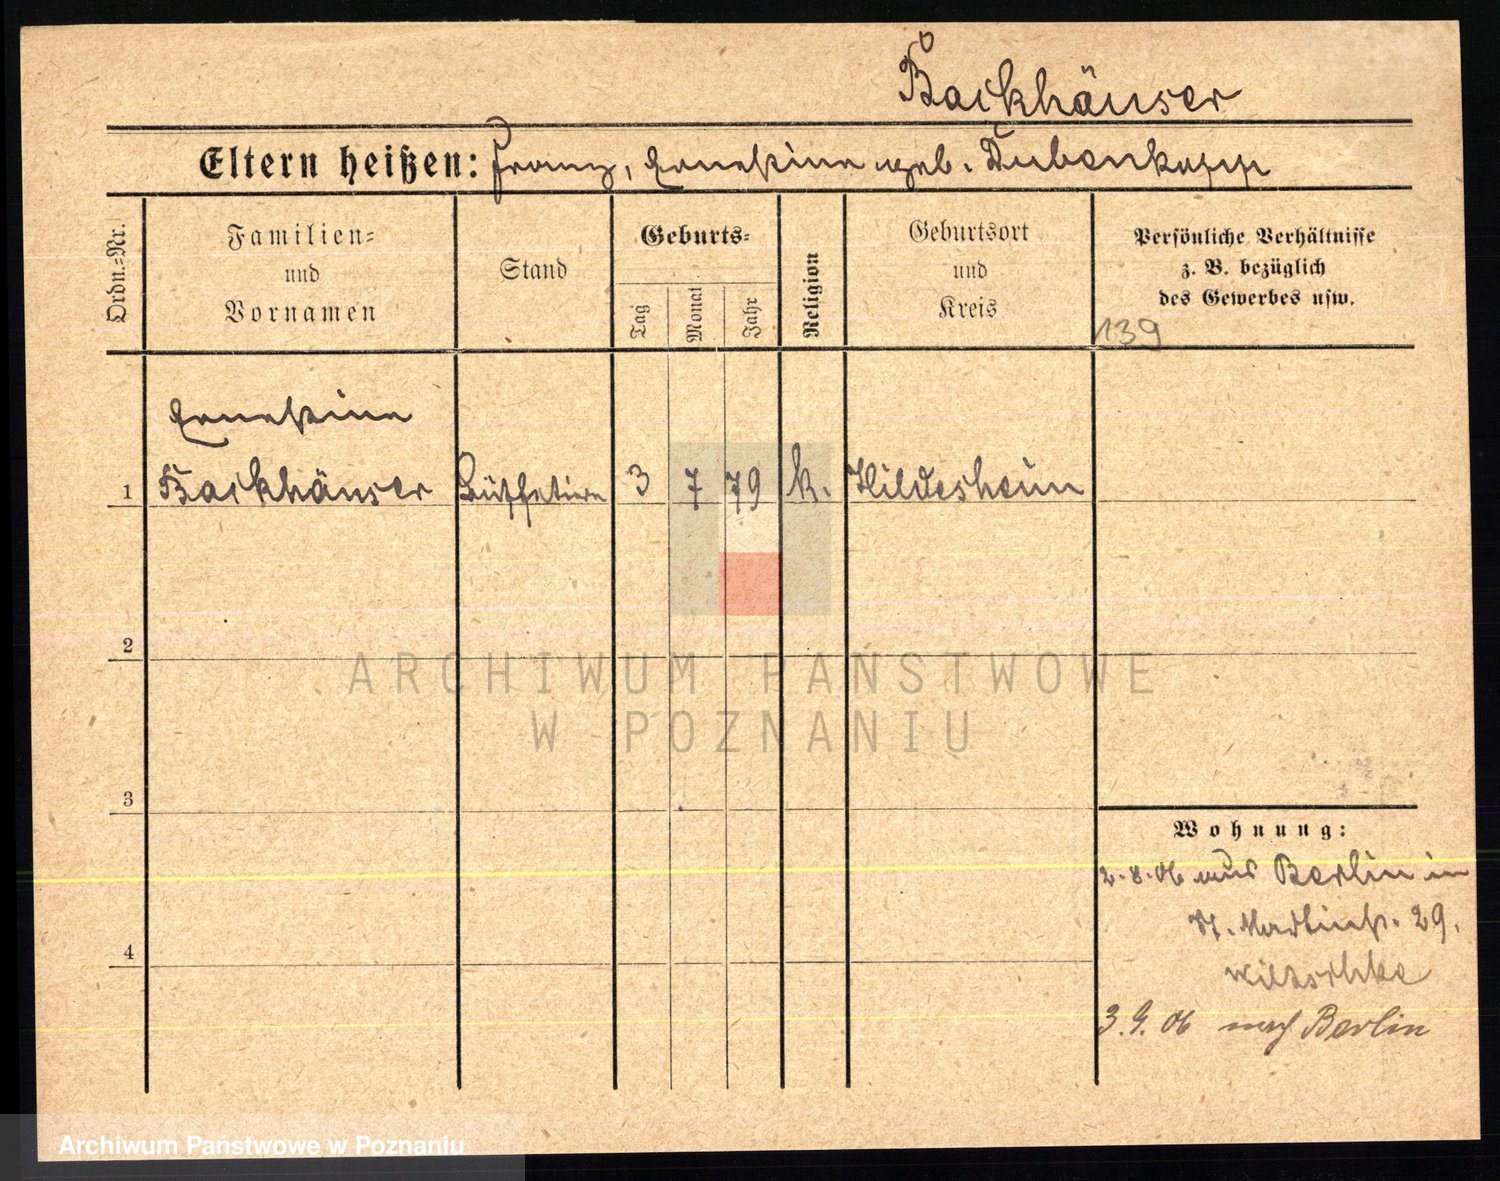 Backhäuser
Eltern heißen: Franz, Ernestine geb. Dubenkopp
Ordn.-Nr.
Familien- und Vornamen
Stand
Geburts-
Tag
Monat
Jahr
Religion
Geburtsort und Kreis
Persönliche Verhältnisse
z. B. bezüglich
des Gewerbes usw.
139
Ernestine
1 Backhäuser Büffetiere 3 7 79 k. Hildesheim
2
ARCHIWUM PAŃSTWOWE
W POZNANIU
3
Wohnung:
2.8.06 aus Berlin in
St. Martinst. 29.
4
3.9.06 nach Berlin
Archiwum Państwowe w Poznaniu